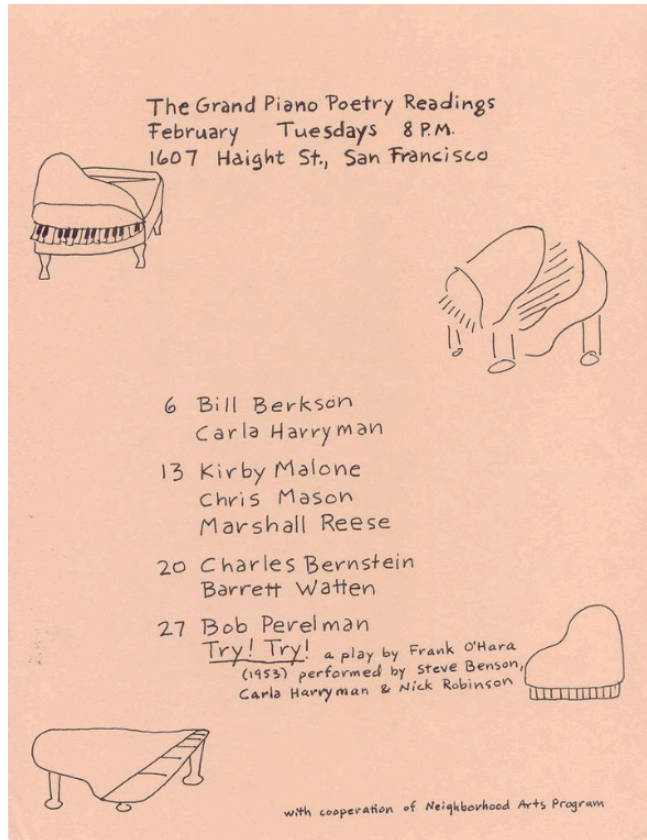 The Grand Piano Poetry Readings
February Tuesdays 8 P.M.
1607 Haight St., San Francisco
6 Bill Berkson
Carla Harryman
13 Kirby Malone
Chris Mason
Marshall Reese
20 Charles Bernstein
Barrett Watten
27 Bob Perelman
Try! Try! a play by Frank O'Hara
(1953) performed by Steve Benson,
Carla Harryman & Nick Robinson
with cooperation of Neighborhood Arts Program